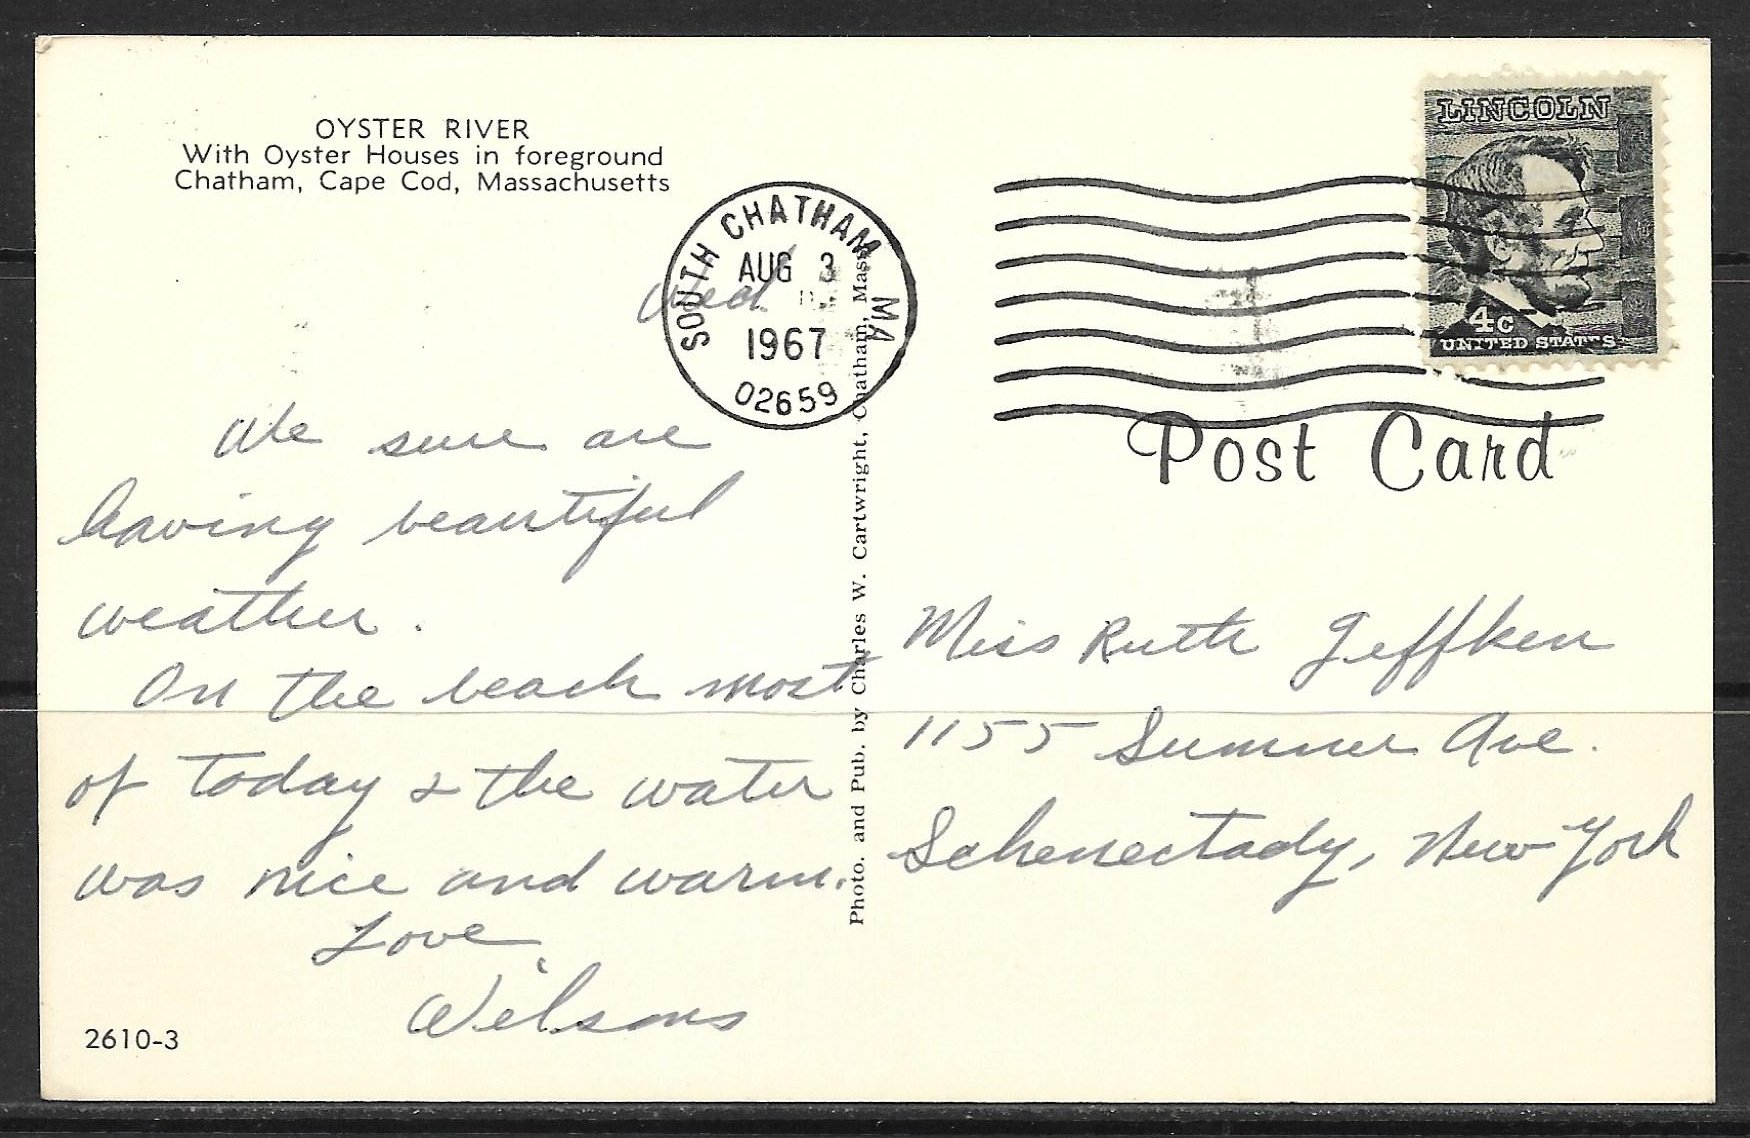 OYSTER RIVER
With Oyster Houses in foreground
Chatham, Cape Cod, Massachusetts
Wed
SOUTH CHATHAM MA
AUG 3
1967
02659
LINCOLN
4c
UNITED STATES
Post Card
We sure are
having beautiful
weather.
On the beach most
of today & the water
was nice and warm.
Love,
Wilsons
2610-3
Photo. and Pub. by Charles W. Cartwright, Chatham, Mass.
Miss Ruth Geffken
1155 Sumner Ave.
Schenectady, New York